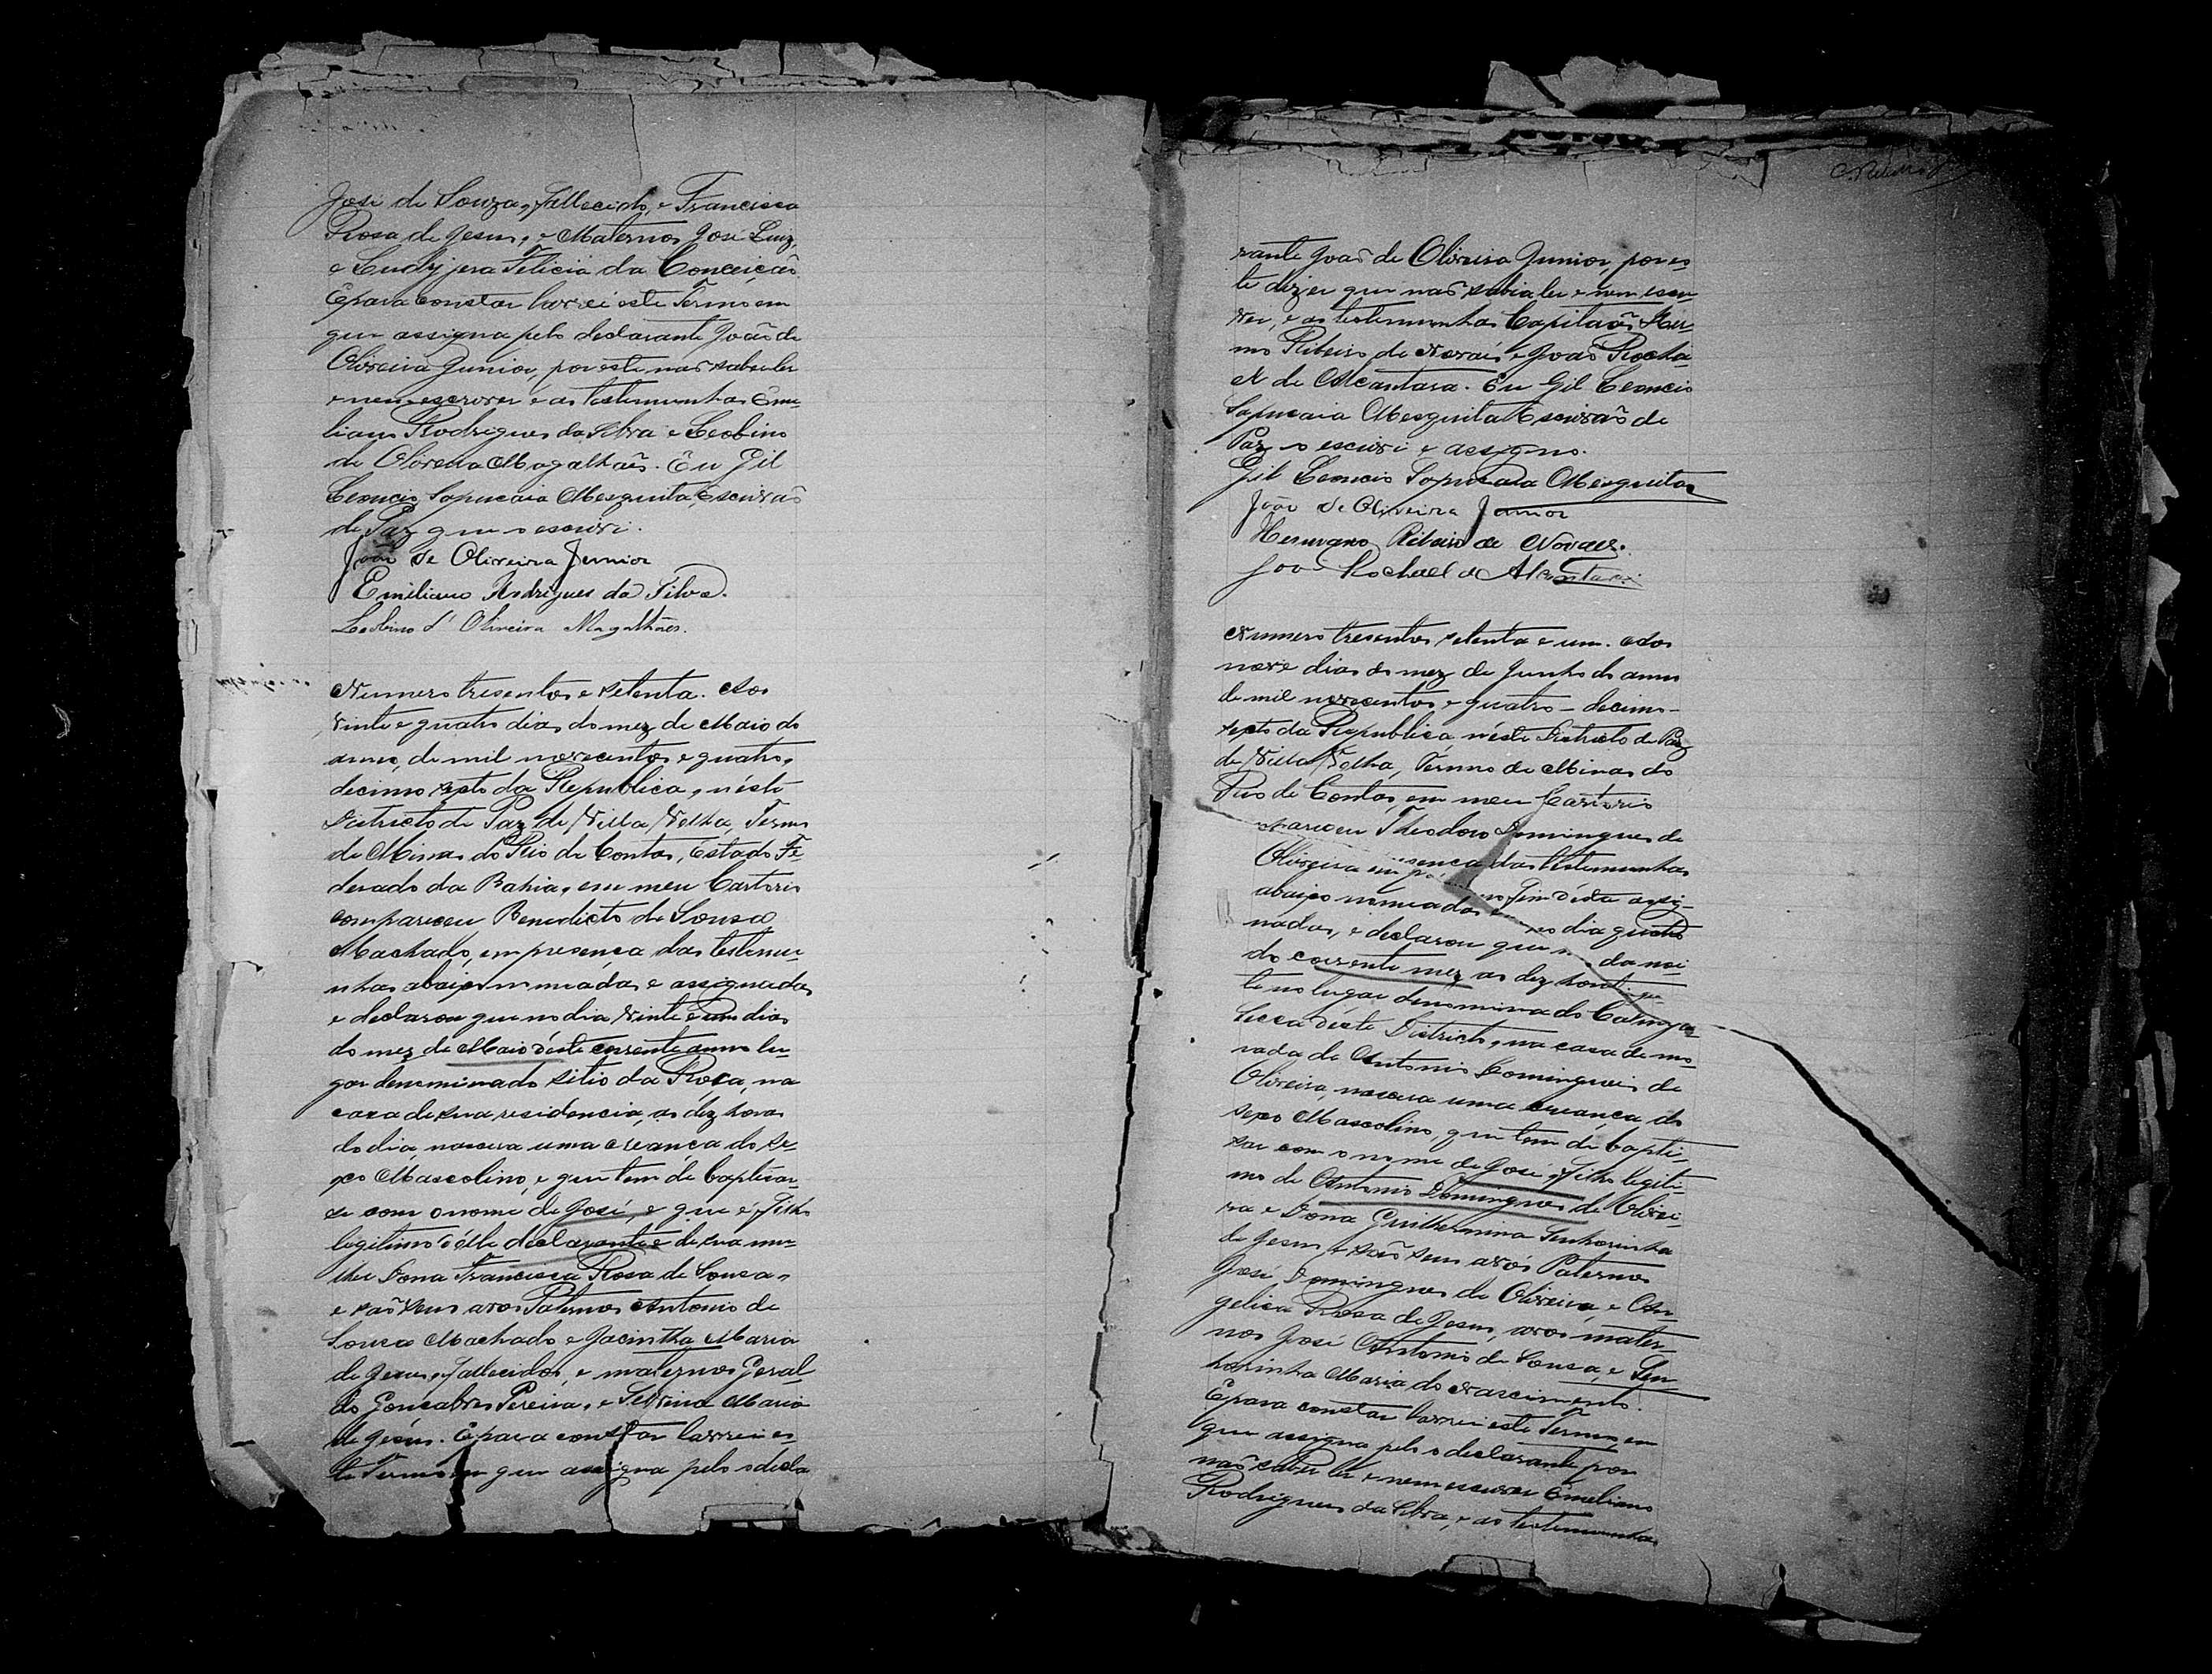 José de Souza, fallecido, e Francisca
Rosa de Jesus, e Maternos José Luiz,
e Felicia da Conceição
E para constar lavrei este Termo em
que assigna pelo declarante João de
Oliveira Junior, por este não saber ler
e nem escrever e as testemunhas Emi-
liano Rodrigues da Silva e Leobino
de Oliveira Magalhães. Eu Gil
Leoncio Sapucaia Mesquita, Escrivão
de Paz que o escrivi.
João de Oliveira Junior
Emiliano Rodrigues da Silva.
Leobino d' Oliveira Magalhães.
Numero tresentos e setenta. Aos
vinte e quatro dias do mez de Maio do
anno, de mil novecentos e quatro,
decimo sexto da Republica, n'éste
Districto de Paz de Villa Velha, Termo
de Minas do Rio de Contas, Estado Fe-
derado da Bahia, em meu Cartorio
compareceu Benedicto de Sousa
Machado, em presença das testemu-
nhas abaixo nomeadas e assignadas
e declarou que no dia vinte e um dias
do mez de Maio d'éste corrente anno lu-
gar denominado sitio da Roça, na
casa de sua residencia, as dez horas
do dia, nascera uma creança do se-
xo Mascolino, e que tem de baptisar-
se com o nome de José, e que é filho
legitimo d'élle declarante e de sua mu-
lher Dona Francisca Rosa de Sousa,
e são seus avos Paternos Antonio de
Sousa Machado e Jacintha Maria
de Jesus, fallecidos, e maternos Geral-
do Gonsalves Pereira, e Silvina Maria
de Jesus. E para constar lavrei es-
te Termo em que assigna pelo o decla-
rante João de Oliveira Junior, por es-
te dizer que não sabia ler e nem escre-
ver, e as testemunhas Capitão Her-
mo Ribeiro de Novaes e João Rocha-
el de Alcantara. Eu Gil Leoncio
Sapucaia Mesquita Escrivão de
Paz o escrivi e assigno.
Gil Leoncio Sapucaia Mesquita
João de Oliveira Junior
Ribeiro de Novaes.
João Rochael de Alcantara
Numero tresentos setenta e um. Aos
nove dias do mez de Junho do anno
de mil novecentos e quatro - decimo-
sexto da Republica, n'éste Districto de Paz
de Villa Velha, Termo de Minas do
Rio de Contas, em meu Cartorio
pareceu Theodoro Domingues de
Oliveira em sença das testemunhas
abaixo nomeadas e no fim d'ésta assig-
nadas, e declarou que no dia quatro
do corrente mez as dez horas da noi-
te no lugar denominado Catinga
Secca d'éste Districto, na casa de mo-
rada de Antonio Domingues de
Oliveira, nascera uma creança do
sexo Mascolino, que tem de bapti-
sar com o nome de José, filho legiti-
mo de Antonio Domingues de Olivei-
ra e Dona Guilhermina Senhorinha
de Jesus, e são seus avós Paternos
José Domingues de Oliveira, e An-
gelica Rosa de Jesus, avos mater-
nos José Antonio de Sousa, e Sen-
horinha Maria do Nascimento.
E para constar lavrei este Termo, em
que assigna pelo o declarante por
não saber ler e nem escrever Emiliano
Rodrigues da Silva, e as testemunhas